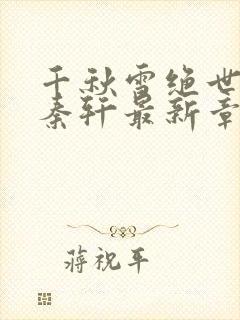 千秋雪绝世
秦轩最新章
蒋祝平